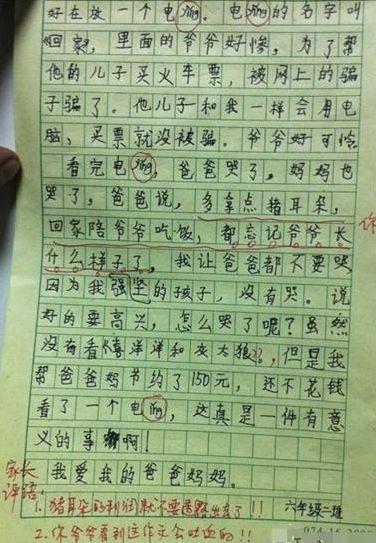 好在放一个电影。电影的名字叫
《回家》，里面的爷爷好惨，为了帮
他的儿子买火车票，被网上的骗
子骗了。他儿子和我一样会用电
脑，买票就没被骗。爷爷好可怜
看完电影，爸爸哭了，妈妈也
哭了，爸爸说，多拿点猪耳朵，
回家陪爷爷吃饭，都忘记爷爷长
什么样子了。我让爸爸都不要哭
因为我强坚的孩子，没有哭。说
好的要高兴，怎么哭了呢？虽然
没有看《喜洋洋和灰太狼》，但是我
帮爸爸妈妈节约了150元，还不花钱
看了一个电影，这真是一件有意
义的事啊！
我爱我的爸爸妈妈。
家长
评语：
1.猪耳朵的利润就不要透露出去了!!
六年级二班
2.你爷爷看到这作文会吐血的!!